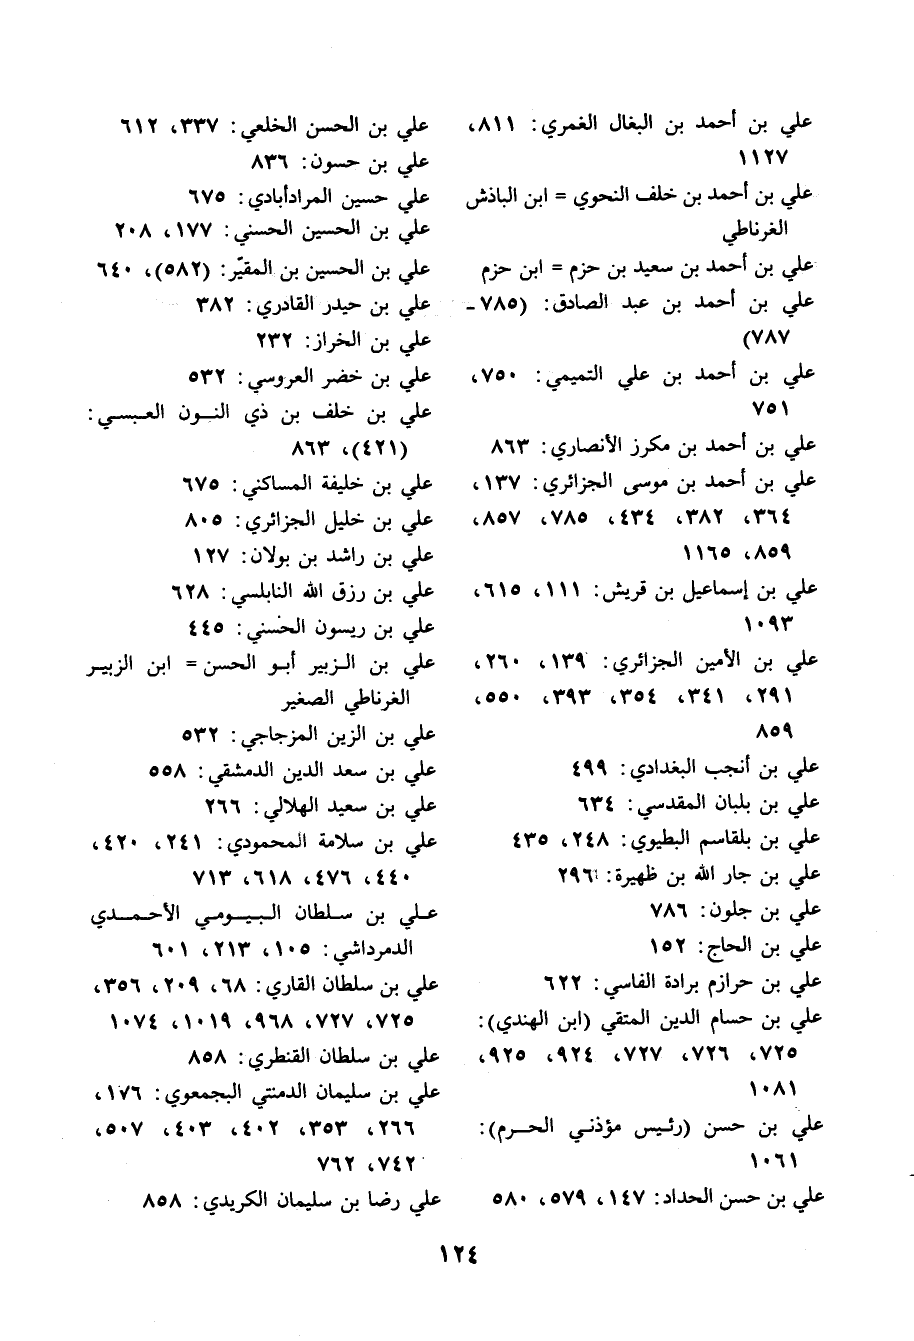 علي بن أحمد بن البغال الغمري: ٨١١،
١١٢٧
علي بن أحمد بن خلف النحوي = ابن الباذش
الغرناطي
علي بن أحمد بن سعيد بن حزم = ابن حزم
علي بن أحمد بن عبد الصادق: (٧٨٥ ـ
٧٨٧)
علي بن أحمد بن علي التميمي: ٧٥٠،
٧٥١
علي بن أحمد بن مكرز الأنصاري: ٨٦٣
علي بن أحمد بن موسى الجزائري: ١٣٧،
٣٦٤، ٣٨٢، ٤٣٤، ٧٨٥، ٨٥٧،
٨٥٩، ١١٦٥
علي بن إسماعيل بن قريش: ١١١، ٦١٥،
١٠٩٣
علي بن الأمين الجزائري: ١٣٩، ٢٦٠،
٢٩١، ٣٤١، ٣٥٤، ٣٩٣، ٥٥٠،
٨٥٩
علي بن أنجب البغدادي: ٤٩٩
علي بن بلبان المقدسي: ٦٣٤
علي بن بلقاسم البطيوي: ٢٤٨، ٤٣٥
علي بن جار الله بن ظهيرة: ٢٩٦
علي بن جلون: ٧٨٦
علي بن الحاج: ١٥٢
علي بن حرازم برادة الفاسي: ٦٢٢
علي بن حسام الدين المتقي (ابن الهندي):
٧٢٥، ٧٢٦، ٧٢٧، ٩٢٤، ٩٢٥،
١٠٨١
علي بن حسن (رئيس مؤذني الحرم):
١٠٦١
علي بن حسن الحداد: ١٤٧، ٥٧٩، ٥٨٠
علي بن الحسن الخلعي: ٣٣٧، ٦١٢
علي بن حسون: ٨٣٦
علي حسين المرادأبادي: ٦٧٥
علي بن الحسين الحسني: ١٧٧، ٢٠٨
علي بن الحسين بن المقيّر: (٥٨٢)، ٦٤٠
علي بن حيدر القادري: ٣٨٢
علي بن الخراز: ٢٣٢
علي بن خضر العروسي: ٥٣٢
علي بن خلف بن ذي النون العبسي:
(٤٢١)، ٨٦٣
علي بن خليفة المساكني: ٦٧٥
علي بن خليل الجزائري: ٨٠٥
علي بن راشد بن بولان: ١٢٧
علي بن رزق الله النابلسي: ٦٢٨
علي بن ريسون الحسني: ٤٤٥
علي بن الزبير أبو الحسن = ابن الزبير
الغرناطي الصغير
علي بن الزين المزجاجي: ٥٣٢
علي بن سعد الدين الدمشقي: ٥٥٨
علي بن سعيد الهلالي: ٢٦٦
علي بن سلامة المحمودي: ٢٤١، ٤٢٠،
٤٤٠، ٤٧٦، ٦١٨، ٧١٣
علي بن سلطان البيومي الأحمدي
الدمرداشي: ١٠٥، ٢١٣، ٦٠١
علي بن سلطان القاري: ٦٨، ٢٠٩، ٣٥٦،
٧٢٥، ٧٢٧، ٩٦٨، ١٠١٩، ١٠٧٤
علي بن سلطان القنطري: ٨٥٨
علي بن سليمان الدمنتي البجمعوي: ١٧٦،
٢٦٦، ٣٥٣، ٤٠٢، ٤٠٣، ٥٠٧،
٧٤٢، ٧٦٢
علي رضا بن سليمان الكريدي: ٨٥٨
١٢٤